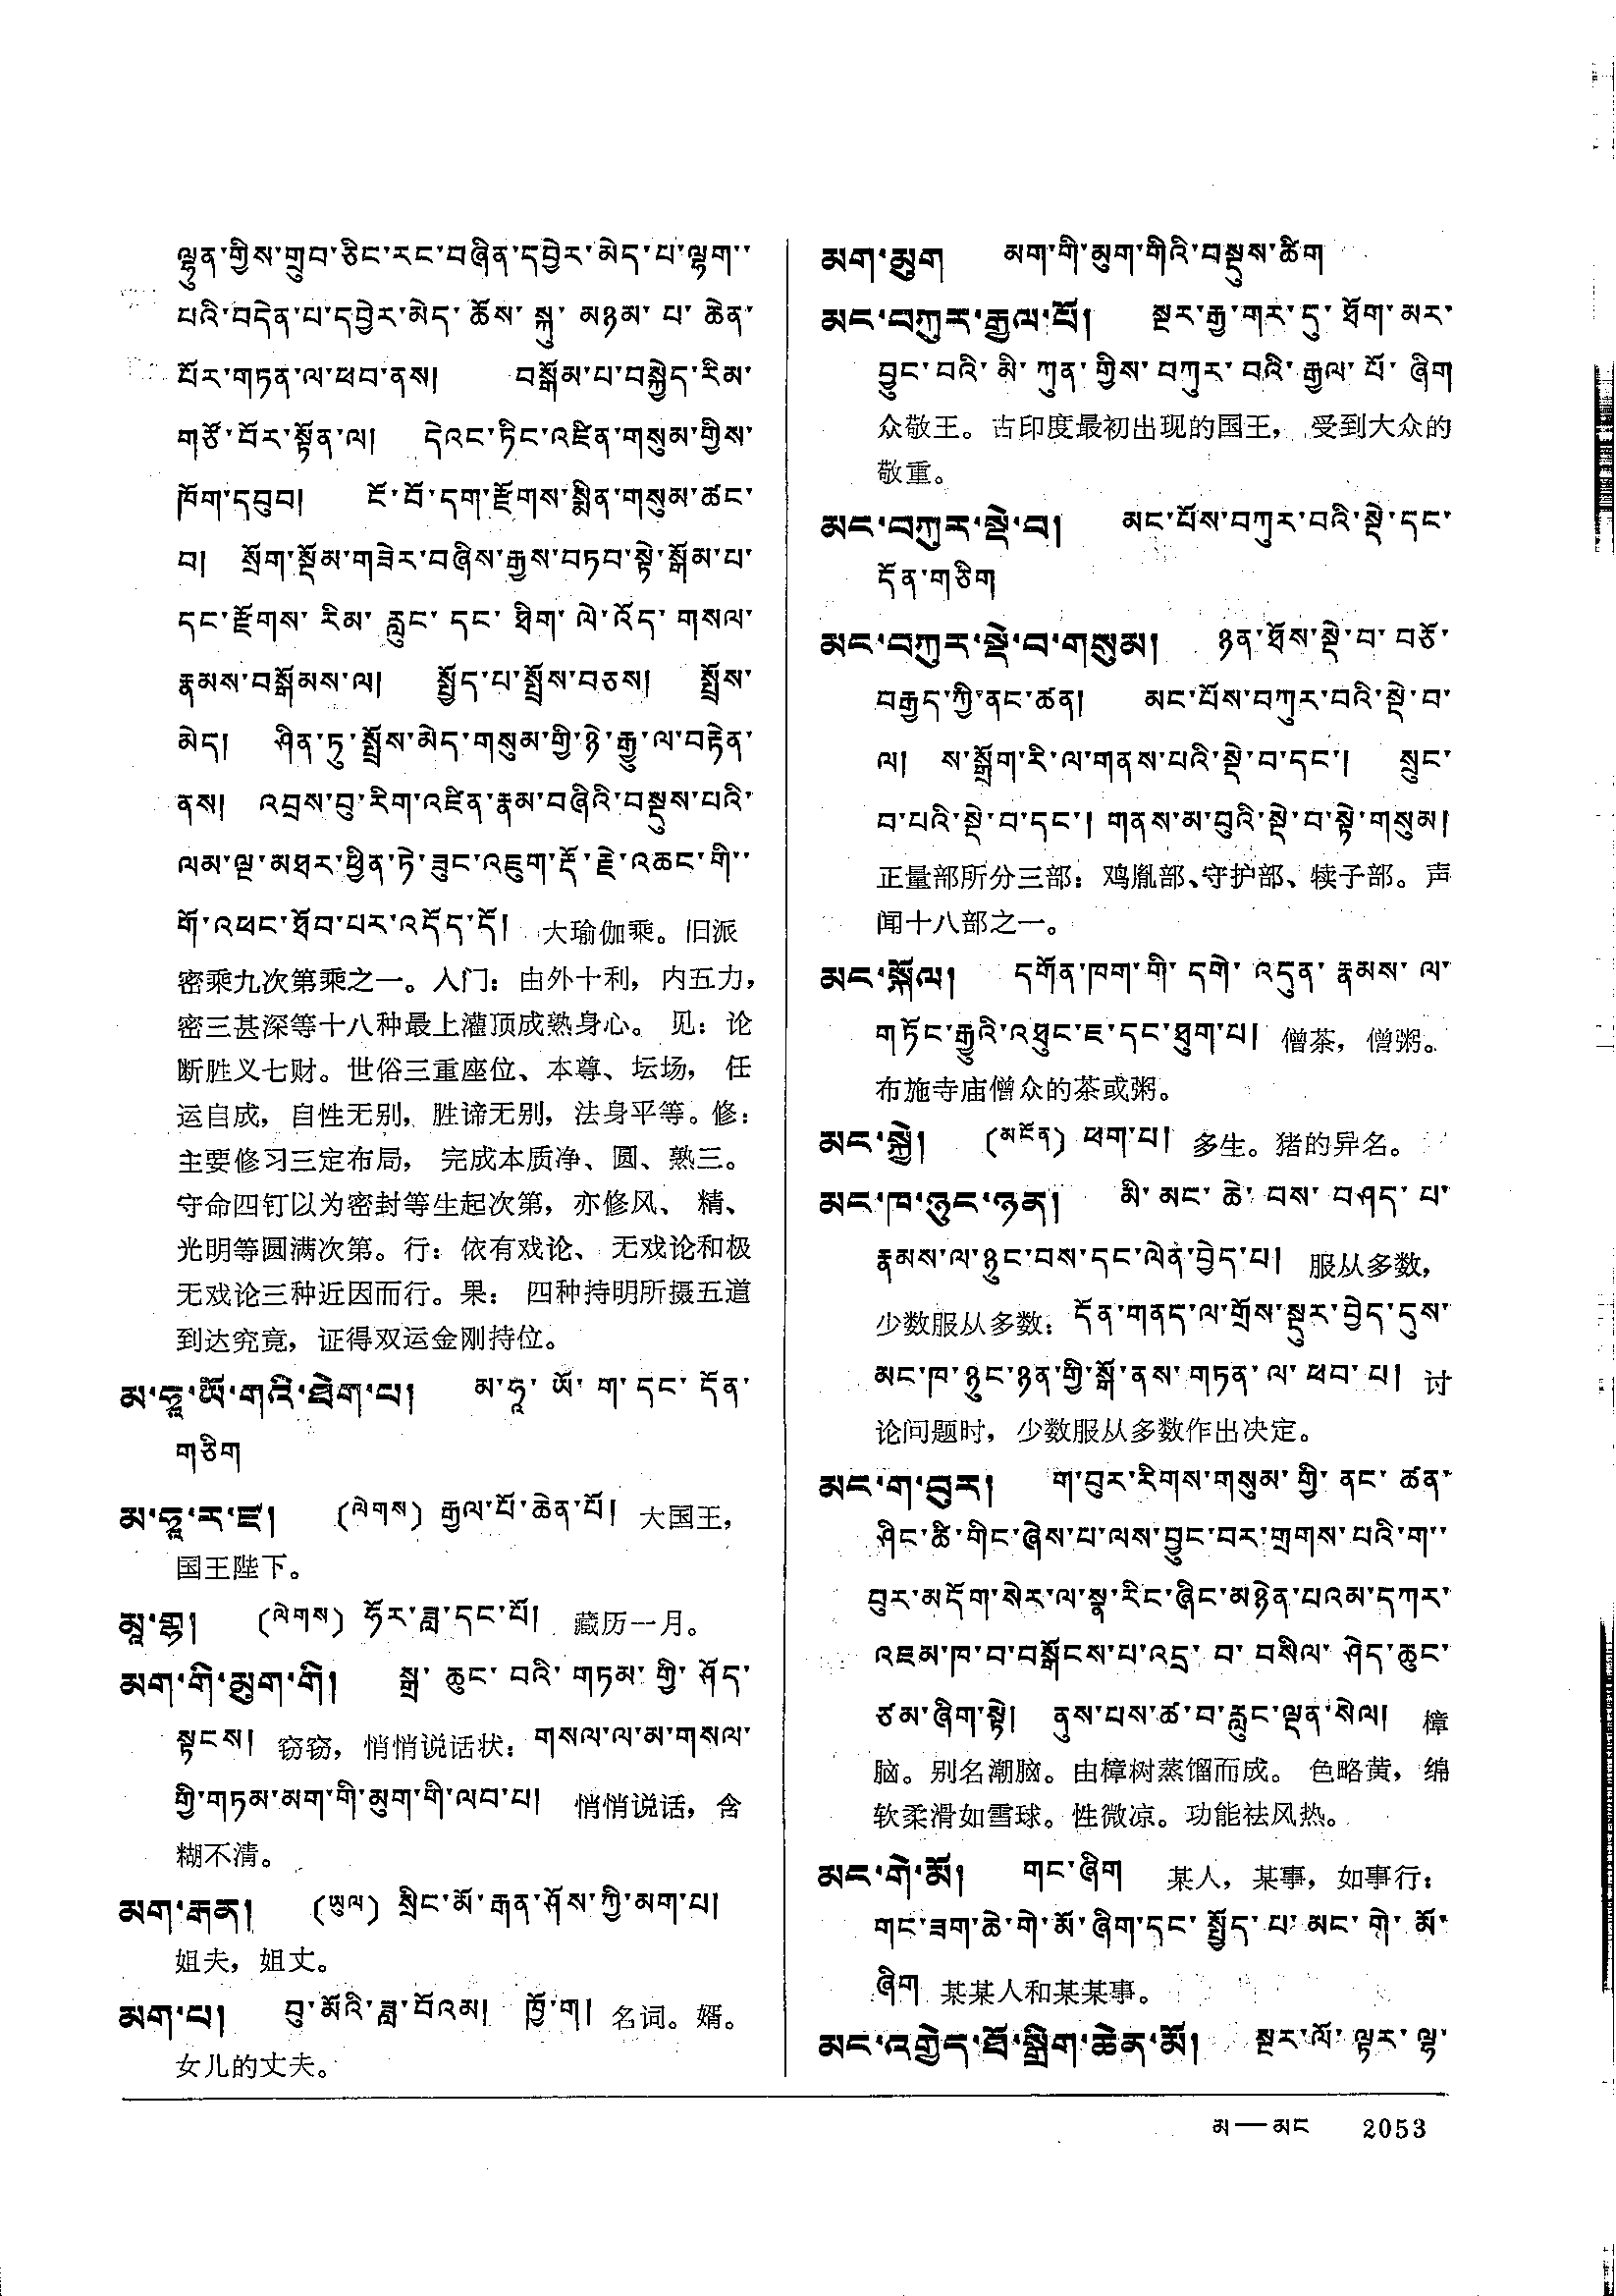 ལྷུན་གྱིས་གྲུབ་ཅིང་རང་བཞིན་དབྱེར་མེད་པ་ལྷག་
པའི་བདེན་པ་དབྱེར་མེད་ཆོས་སྐུ་མཉམ་པ་ཆེན་
པོར་གཏན་ལ་ཕབ་ནས། བསྒོམ་པ་བསྐྱེད་རིམ་
གཙོ་བོར་སྟོན་ལ། དེའང་ཏིང་འཛིན་གསུམ་གྱིས་
ཁོག་དབུབ། ངོ་བོ་དག་རྫོགས་སྨིན་གསུམ་ཚང་
བ། སྲོག་སྡོམ་གཟེར་བཞིས་རྒྱས་བཏབ་སྟེ་སྒོམ་པ་
དང་རྫོགས་རིམ་རླུང་དང་ཐིག་ལེ་འོད་གསལ་
རྣམས་བསྒོམས་ལ། སྤྱོད་པ་སྤྲོས་བཅས། སྤྲོས་
མེད། ཤིན་ཏུ་སྤྲོས་མེད་གསུམ་གྱི་ཉེ་རྒྱུ་ལ་བརྟེན་
ནས། འབྲས་བུ་རིག་འཛིན་རྣམ་བཞིའི་བསྡུས་པའི་
ལམ་ལྔ་མཐར་ཕྱིན་ཏེ་ཟུང་འཇུག་རྡོ་རྗེ་འཆང་གི་
གོ་འཕང་ཐོབ་པར་འདོད་དོ། 大瑜伽乘。旧派
密乘九次第乘之一。入门：由外十利，内五力，
密三甚深等十八种最上灌顶成熟身心。见：论
断胜义七财。世俗三重座位、本尊、坛场，任
运自成，自性无别，胜谛无别，法身平等。修：
主要修习三定布局，完成本质净、圆、熟三。
守命四钉以为密封等生起次第，亦修风、精、
光明等圆满次第。行：依有戏论、无戏论和极
无戏论三种近因而行。果：四种持明所摄五道
到达究竟，证得双运金刚持位。
མ་ཧཱ་ཡོ་གའི་ཐེག་པ། མ་ཧཱ་ཡོ་ག་དང་དོན་
གཅིག
མ་ཧཱ་ར་ཛ། (ལེགས) རྒྱལ་པོ་ཆེན་པོ། 大国王，
国王陛下。
མཱ་གྷ། (ལེགས) ཧོར་ཟླ་དང་པོ། 藏历一月。
མག་གེ་མུག་གེ། སྒྲ་ཆུང་བའི་གཏམ་གྱི་ཤོད་
སྟངས། 窃窃，悄悄说话状：གསལ་ལ་མ་གསལ་
གྱི་གཏམ་མག་གི་མུག་གི་ལབ་པ། 悄悄说话，含
糊不清。
མག་རྒན། (ཡུལ) སྲིང་མོ་རྒན་ཤོས་ཀྱི་མག་པ།
姐夫，姐丈。
མག་པ། བུ་མོའི་ཟླ་བོའམ། ཁྱོ་ག། 名词。婿。
女儿的丈夫。
མག་མུག མག་གི་མུག་གིའི་བསྡུས་ཚིག
མང་བཀུར་རྒྱལ་པོ། སྔར་རྒྱ་གར་དུ་ཐོག་མར་
བྱུང་བའི་མི་ཀུན་གྱིས་བཀུར་བའི་རྒྱལ་པོ་ཞིག
众敬王。古印度最初出现的国王，受到大众的
敬重。
མང་བཀུར་སྡེ་བ། མང་པོས་བཀུར་བའི་སྡེ་དང་
དོན་གཅིག
མང་བཀུར་སྡེ་བ་གསུམ། ཉན་ཐོས་སྡེ་བ་བཅོ་
བརྒྱད་ཀྱི་ནང་ཚན། མང་པོས་བཀུར་བའི་སྡེ་བ་
ལ། ས་སྒྲོག་རི་ལ་གནས་པའི་སྡེ་བ་དང་། སྲུང་
བ་པའི་སྡེ་བ་དང་། གནས་མ་བུའི་སྡེ་བ་སྟེ་གསུམ།
正量部所分三部：鸡胤部、守护部、犊子部。声
闻十八部之一。
མང་སྐོལ། དགོན་ཁག་གི་དགེ་འདུན་རྣམས་ལ་
གཏོང་རྒྱུའི་འཐུང་ཇ་དང་ཐུག་པ། 僧茶，僧粥。
布施寺庙僧众的茶或粥。
མང་སྐྱེ། (མངོན) ཕག་པ། 多生。猪的异名。
མང་ཁ་ཉུང་ཉན། མི་མང་ཆེ་བས་བཤད་པ་
རྣམས་ལ་ཉུང་བས་དང་ལེན་བྱེད་པ། 服从多数，
少数服从多数：དོན་གནད་ལ་གྲོས་སྡུར་བྱེད་དུས་
མང་ཁ་ཉུང་ཉན་གྱི་སྒོ་ནས་གཏན་ལ་ཕབ་པ། 讨
论问题时，少数服从多数作出决定。
མང་ག་བུར། ག་བུར་རིགས་གསུམ་གྱི་ནང་ཚན་
ཤིང་ཚི་གིང་ཞེས་པ་ལས་བྱུང་བར་གྲགས་པའི་ག་
བུར་མདོག་སེར་ལ་སྣ་རིང་ཞིང་མཉེན་པའམ་དཀར་
འཇམ་ཁ་བ་བསྒོངས་པ་འདྲ་བ་བསིལ་ཤེད་ཆུང་
ཙམ་ཞིག་སྟེ། ནུས་པས་ཚ་བ་རླུང་ལྡན་སེལ། 樟
脑。别名潮脑。由樟树蒸馏而成。色略黄，绵
软柔滑如雪球。性微凉。功能祛风热。
མང་གེ་མོ། གང་ཞིག 某人，某事，如事行：
གང་ཟག་ཆེ་གེ་མོ་ཞིག་དང་སྤྱོད་པ་མང་གེ་མོ་
ཞིག 某某人和某某事。
མང་འགྱེད་ཐོ་སྒྲིག་ཆེན་མོ། སྔར་ལོ་ལྟར་ལྷ་
མ—མང 2053